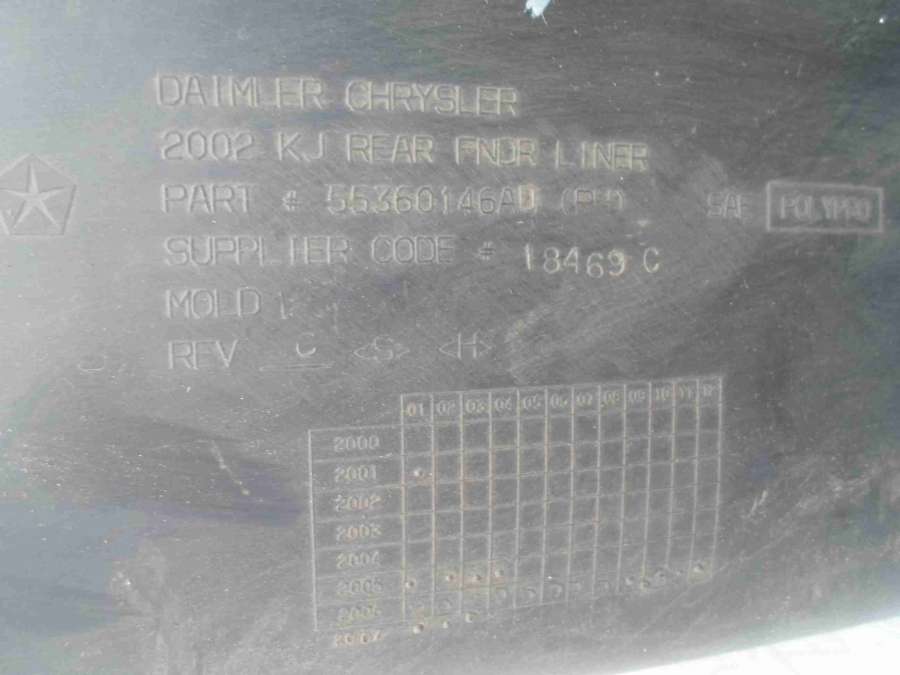 DAIMLER CHRYSLER
2002 KJ REAR FNDR LINER
PART # 55360146AD (RH) SAE POLYPRO
SUPPLIER CODE # 18469 C
MOLD 1
REV C <S> <H>
01 02 03 04 05 06 07 08 09 10 11 12
2000
2001
2002
2003
2004
2005
2006
2007